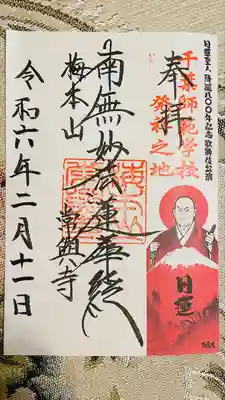 日蓮聖人 降誕八〇〇年記念歌舞伎公演
奉拝
千葉師範学校
発祥之地
南無妙法蓮華経
梅本山
常興寺
令和六年二月十一日
日蓮